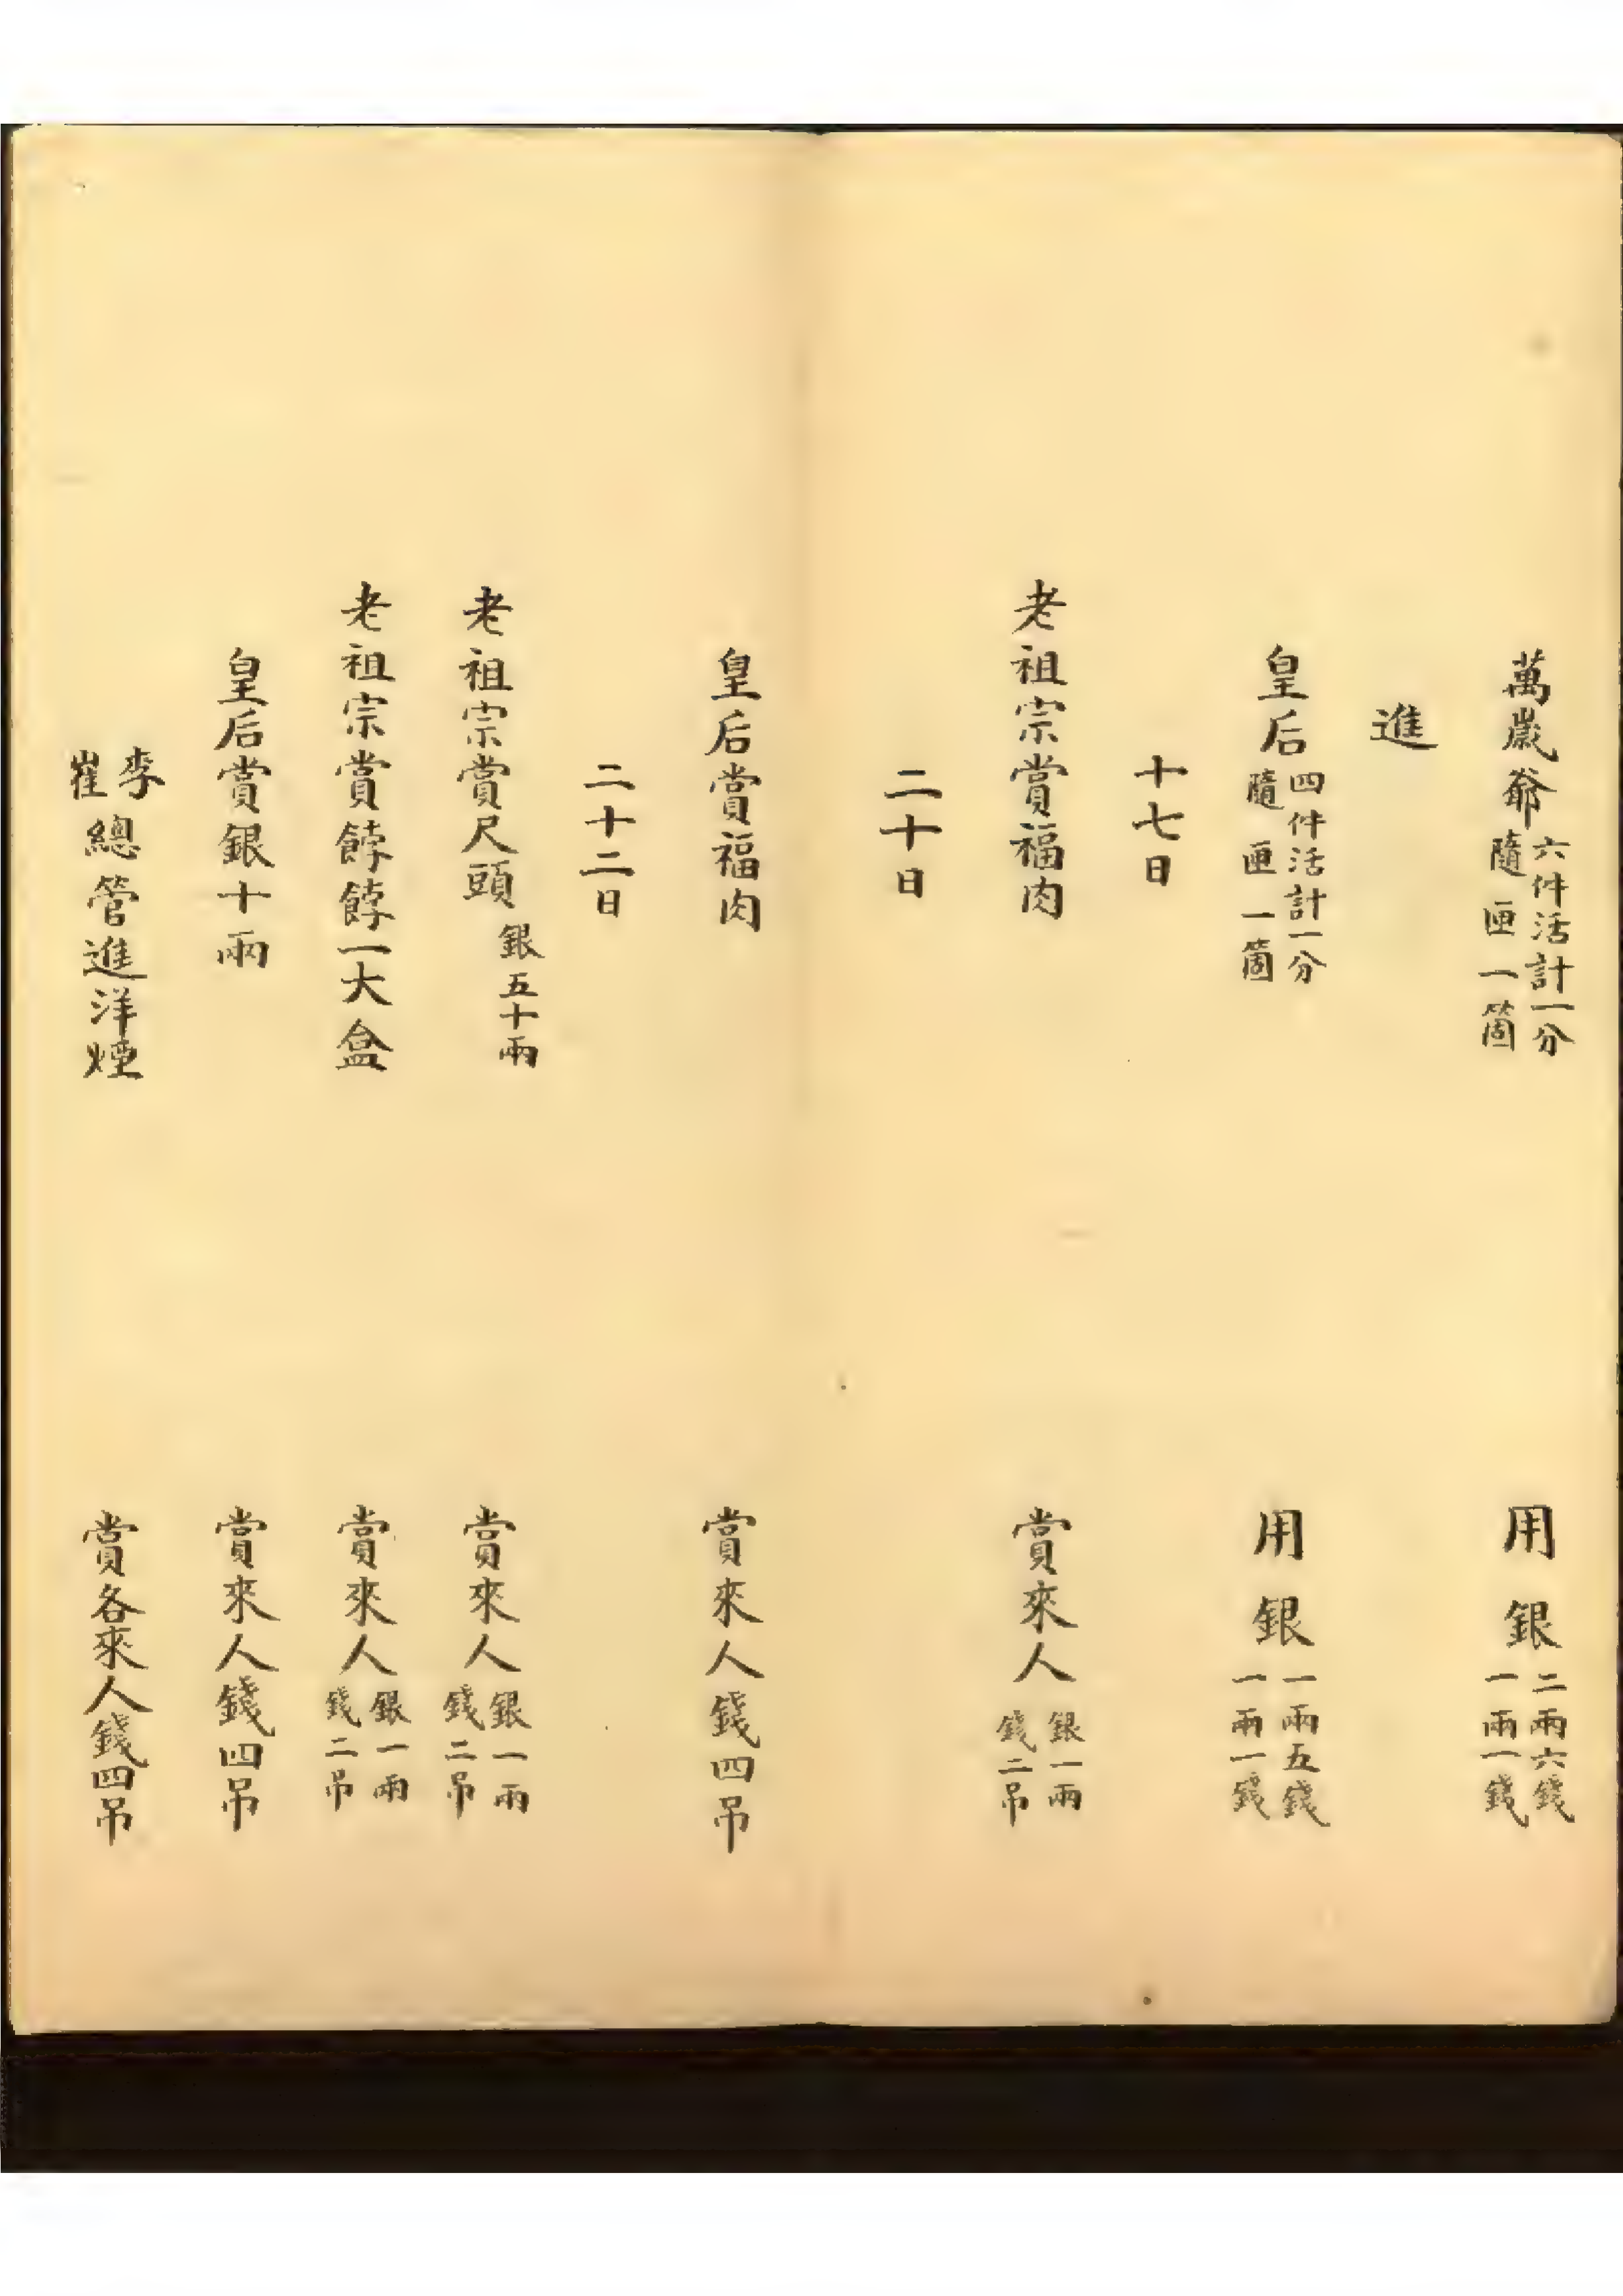 萬歲爺 六件活計一分 隨匣一箇 用銀 二兩六錢 一兩一錢
進
皇后 四件活計一分 隨匣一箇 用銀 一兩五錢 一兩一錢
十七日
老祖宗賞福肉 賞來人 銀一兩 錢二吊
二十日
皇后賞福肉 賞來人錢四吊
二十二日
老祖宗賞尺頭 銀五十兩 賞來人 銀一兩 錢二吊
老祖宗賞餑餑一大盒 賞來人 銀一兩 錢二吊
皇后賞銀十兩 賞來人錢四吊
李 崔 總管進洋煙 賞各來人錢四吊